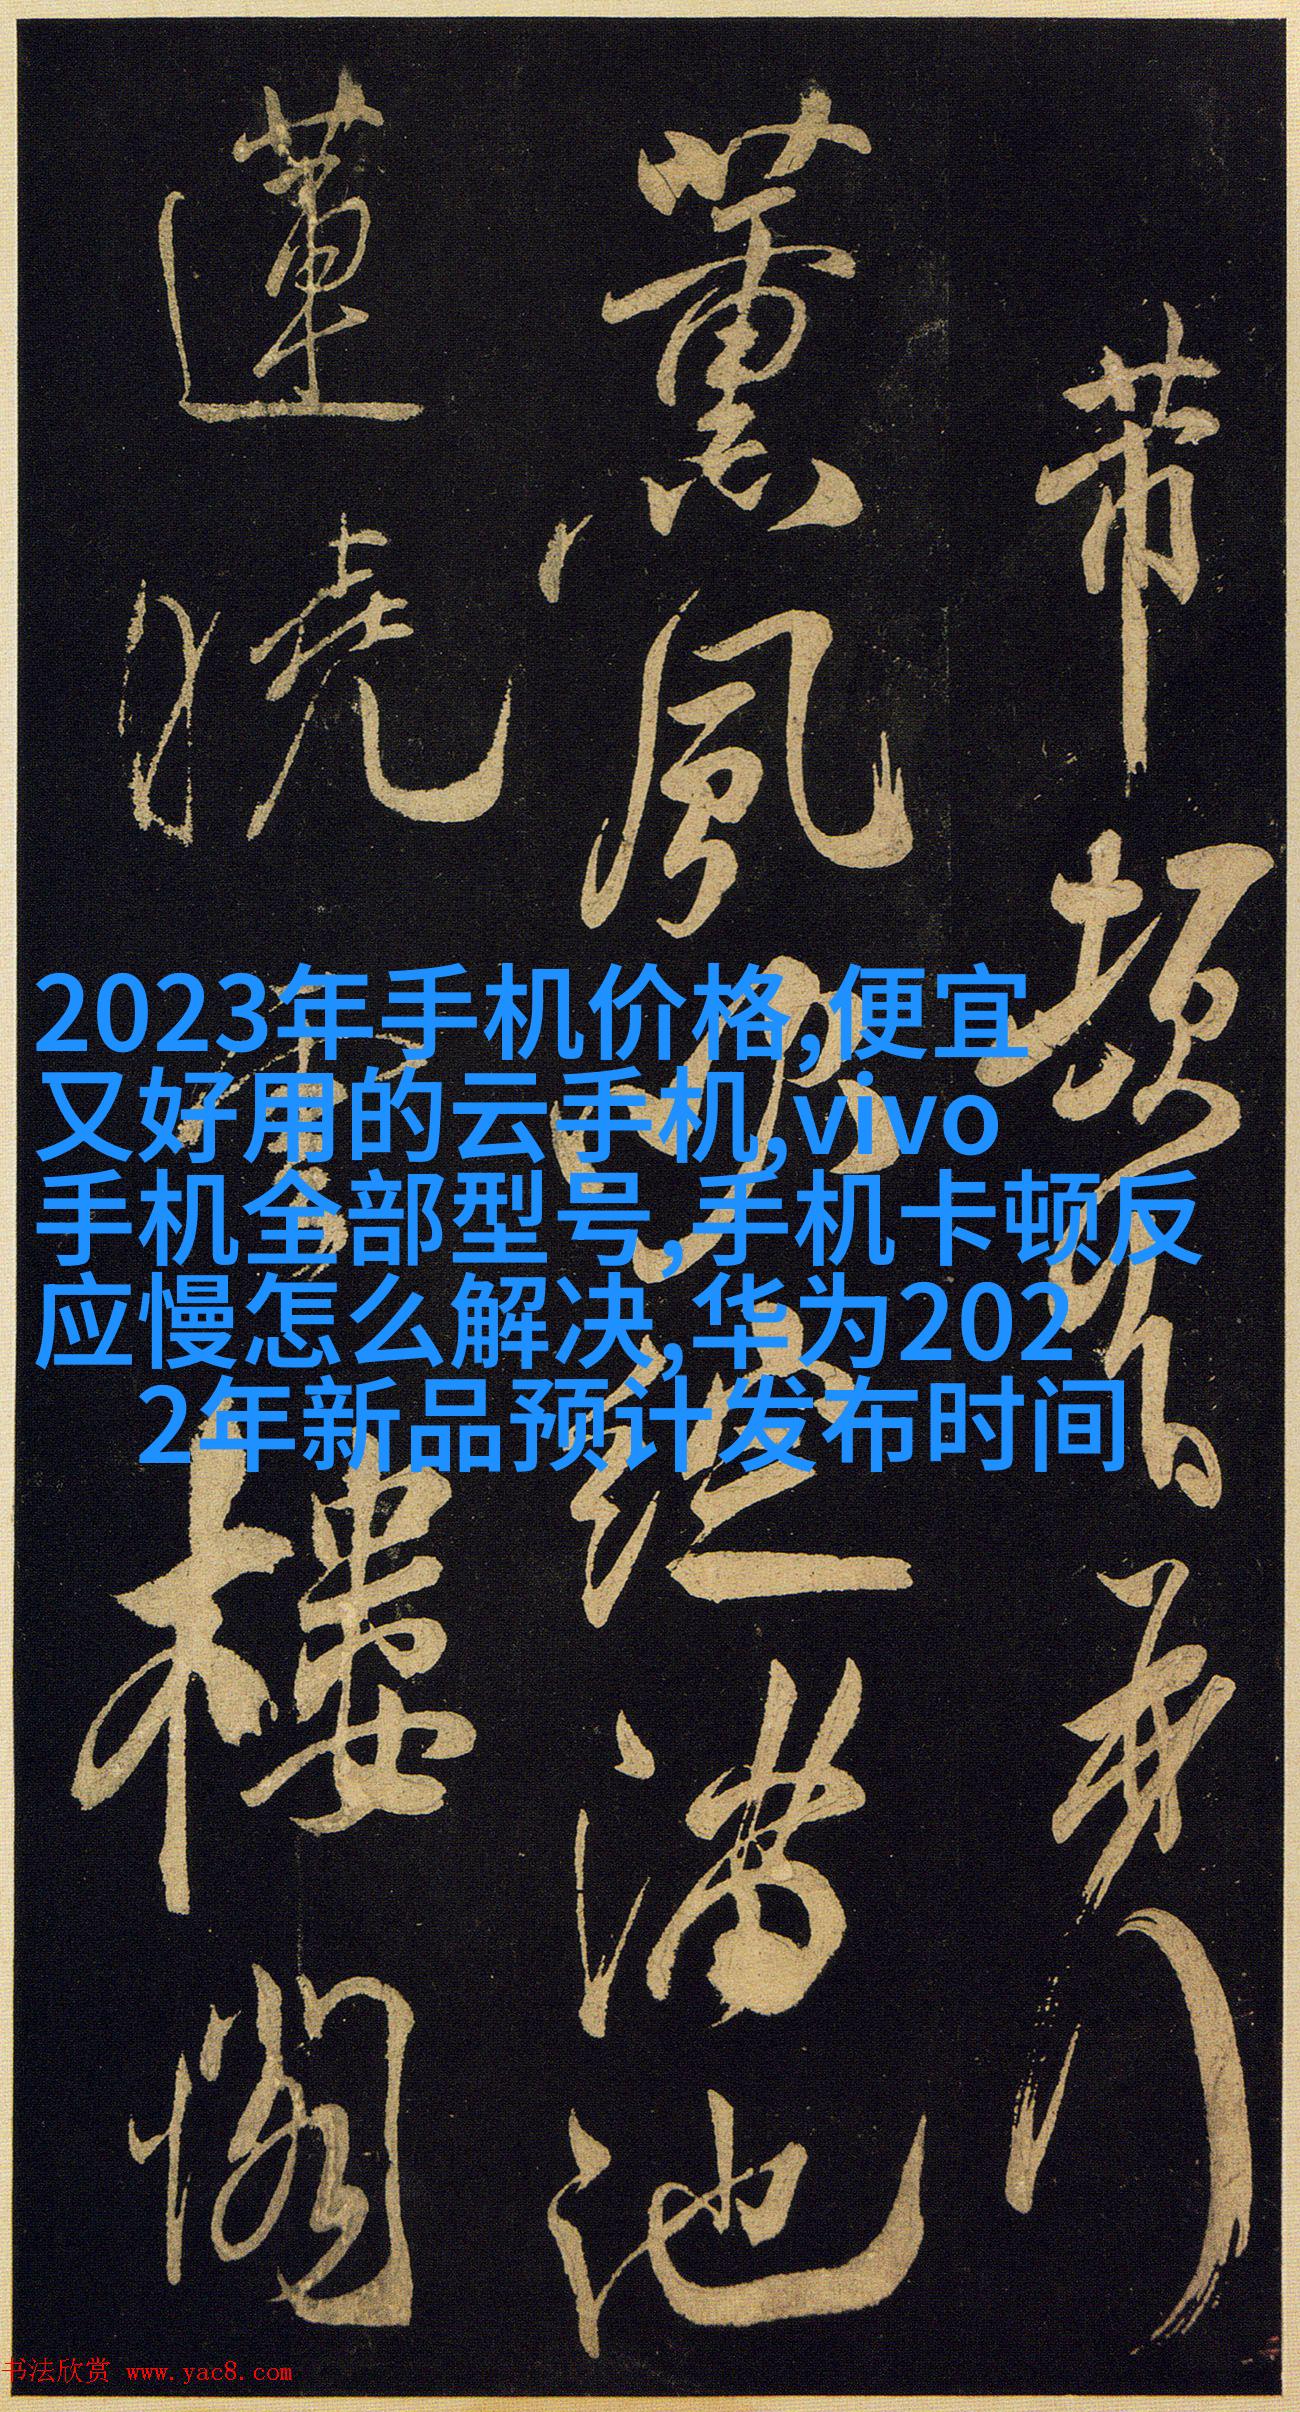 芾頓首
薰風吹綻滿池
蓮曉雲樓閣
2023年手机价格,便宜
又好用的云手机,vivo
手机全部型号,手机卡顿反
应慢怎么解决,华为202
2年新品预计发布时间
书法欣赏 www.yac8.com